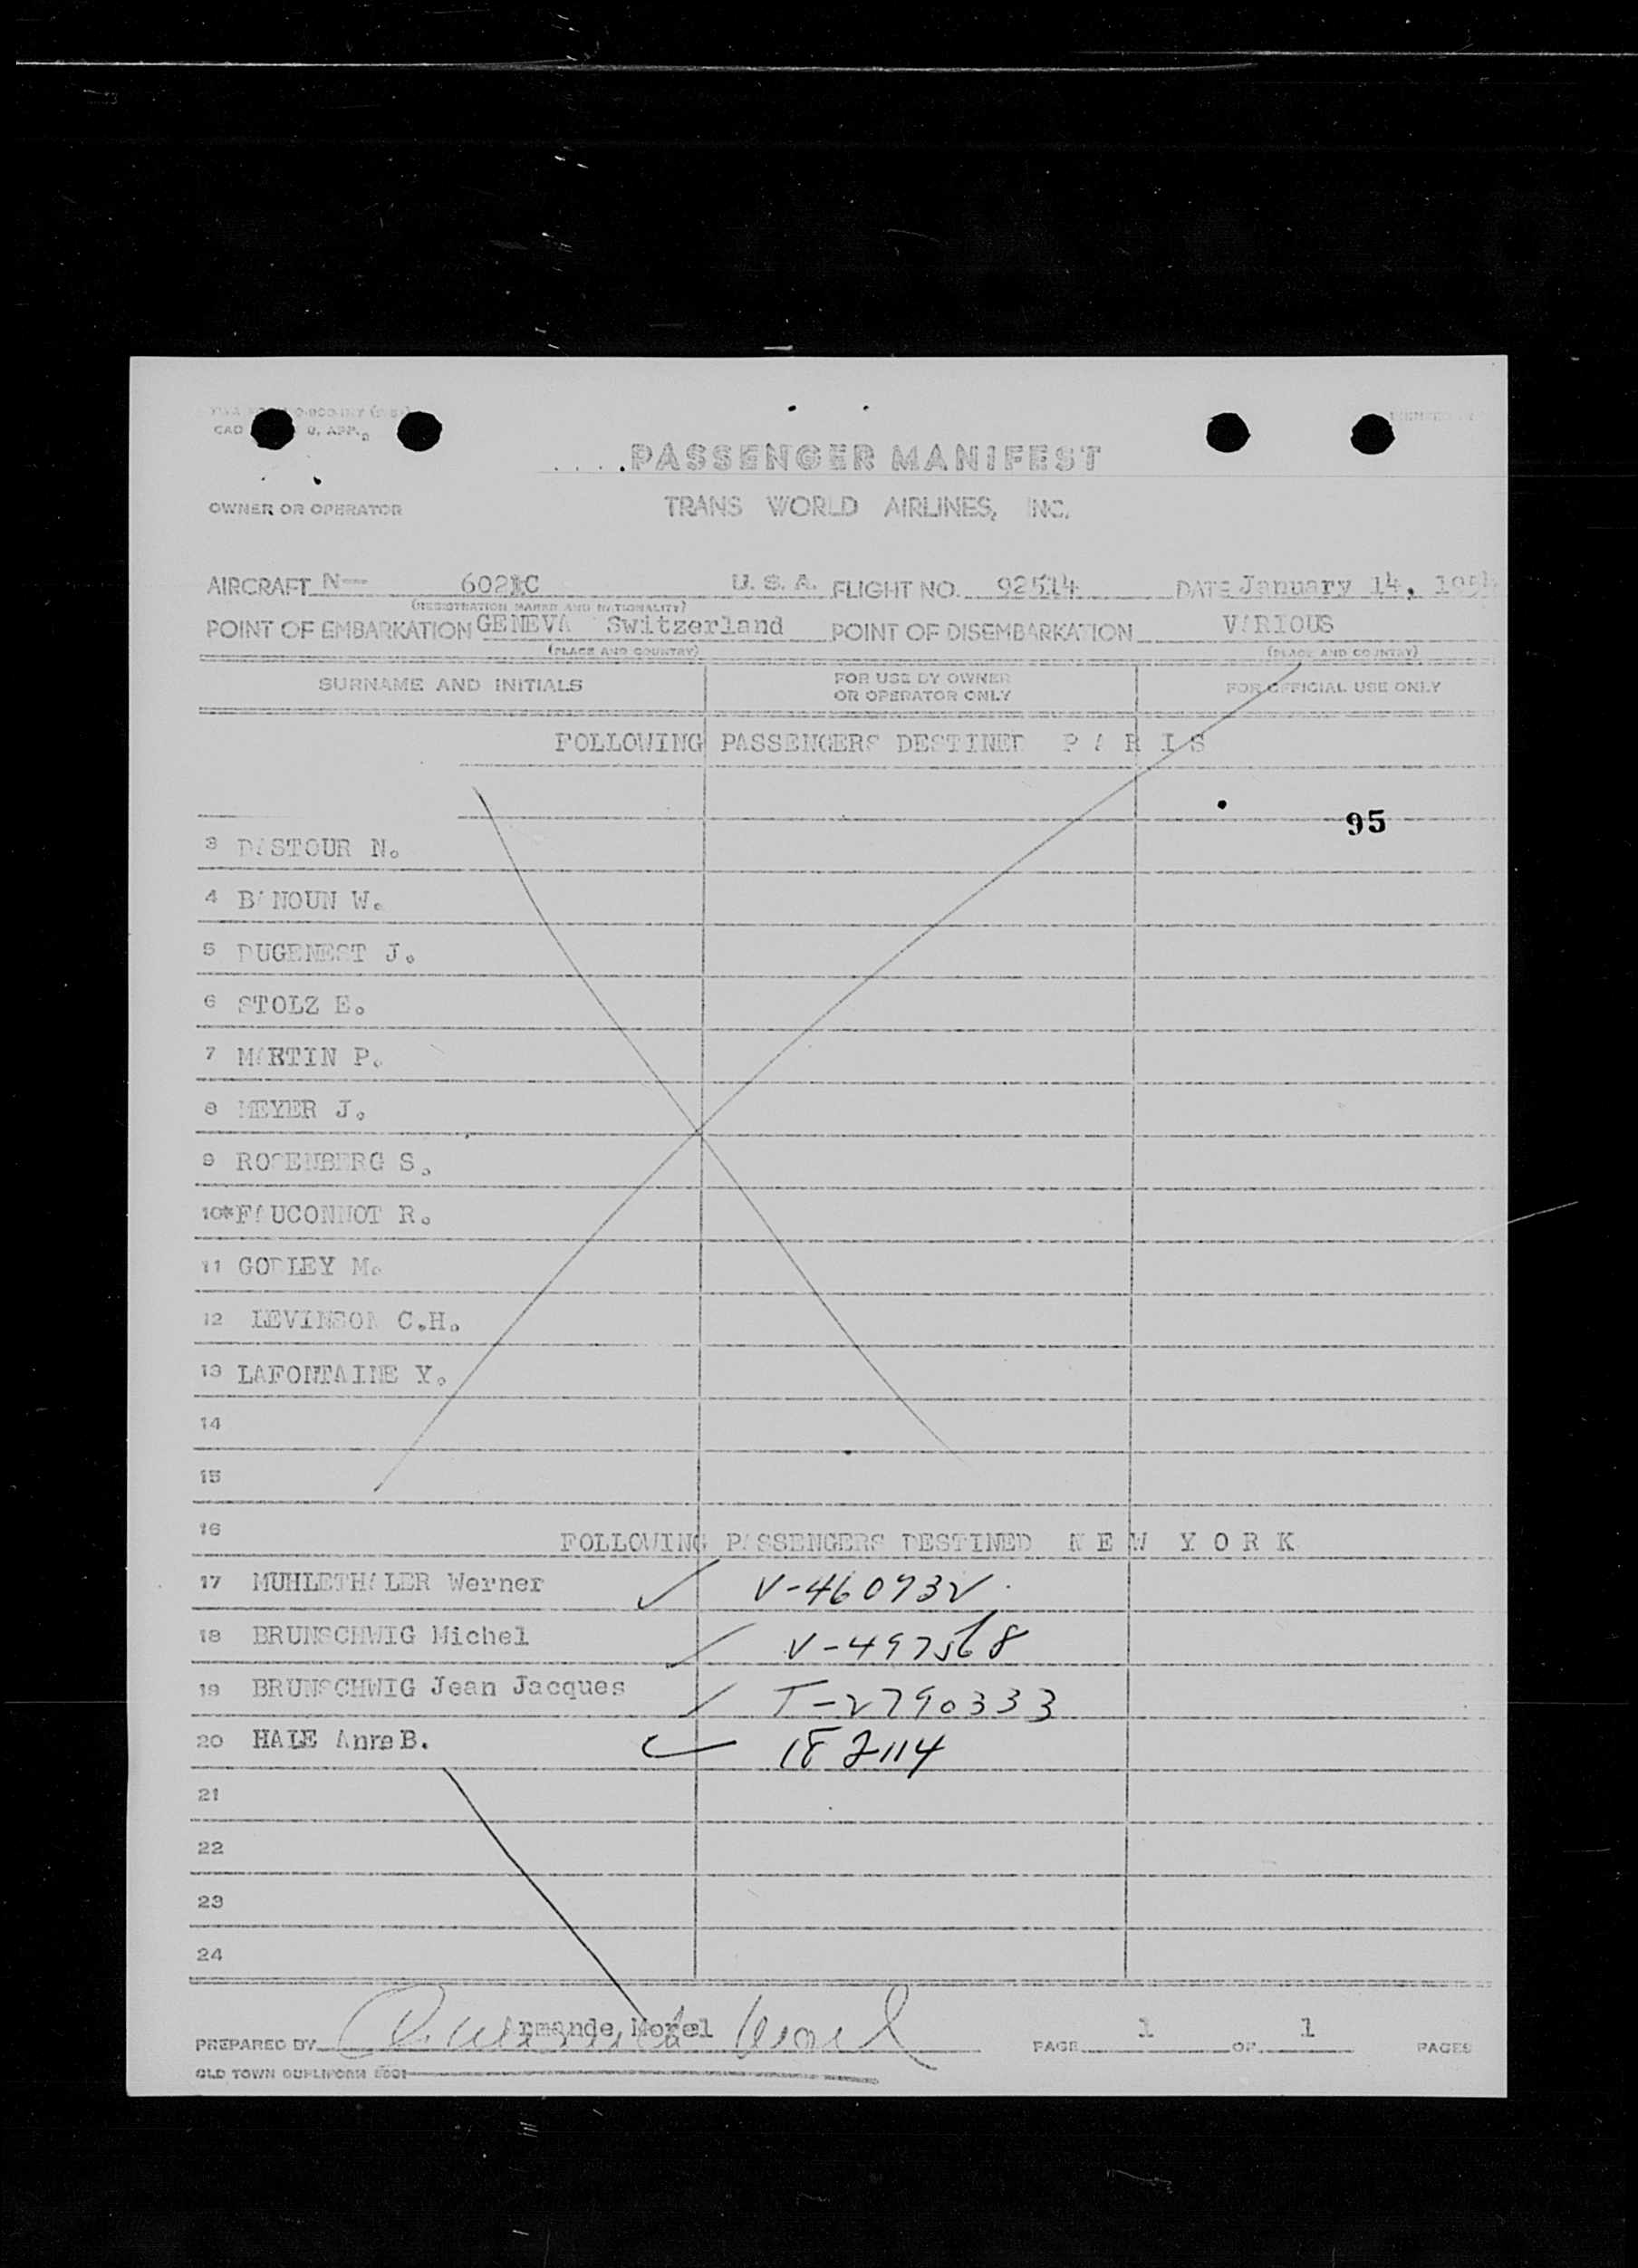 CAD
PASSENGER MANIFEST
OWNER OR OPERATOR TRANS WORLD AIRLINES, INC.
AIRCRAFT N- U. S. A. FLIGHT NO. 92514 DATE January 14,
(REGISTRATION MARKS AND NATIONALITY)
POINT OF EMBARKATION GENEVA Switzerland POINT OF DISEMBARKATION VARIOUS
(PLACE AND COUNTRY) (PLACE AND COUNTRY)
SURNAME AND INITIALS FOR USE BY OWNER OR OPERATOR ONLY FOR OFFICIAL USE ONLY
FOLLOWING PASSENGERS DESTINED P A R I S
95
3 DASTOUR N.
4 BANOUN W.
5 DUGENEST J.
6 STOLZ E.
7 MARTIN P.
8 MEYER J.
9 ROSENBERG S.
10* FAUCONNOT R.
11 M.
12 LEVINSON C.H.
13 LAFONTAINE Y.
14
15
16 FOLLOWING PASSENGERS DESTINED N E W Y O R K
17 MUHLETHALER Werner ✓ V-460732
18 BRUNSCHWIG Michel ✓ V-497568
19 BRUNSCHWIG Jean Jacques ✓ T-2790333
20 HALE Anna B. ✓ 182114
21
22
23
24
PREPARED BY Armande Morel PAGE 1 OF 1 PAGES
OLD TOWN DUPLIFORM